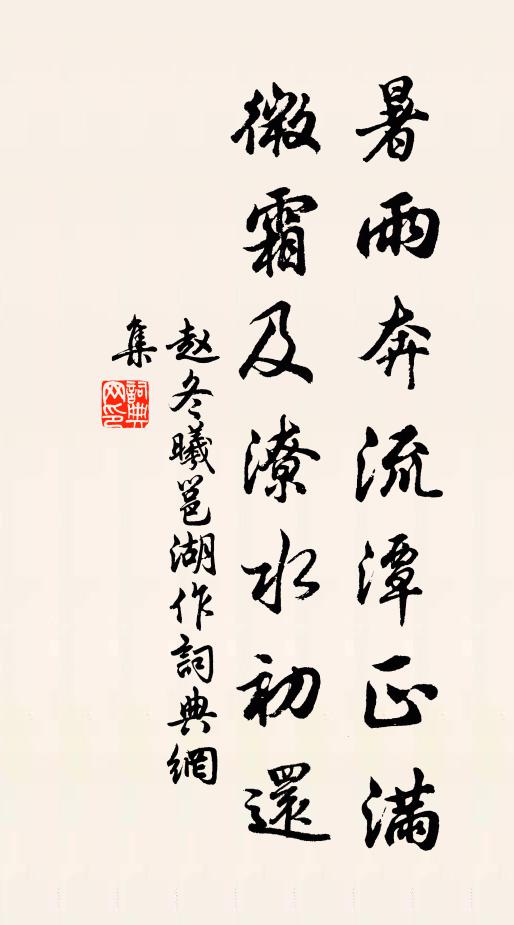 暑雨奔流潭正滿
微霜及潦水初還
赵冬曦邕湖作詞典網
集
詞典網印